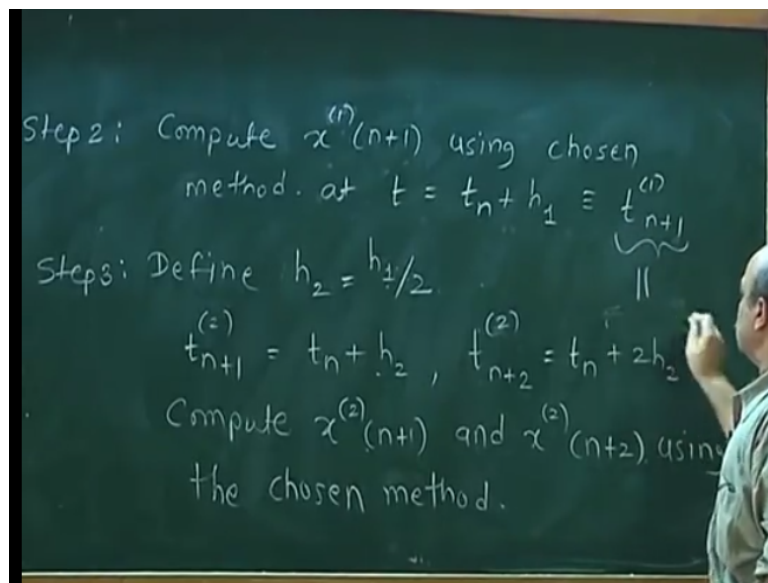 Step2: Compute x^(1)(n+1) using chosen
method. at t = t_n + h_1 ≡ t_{n+1}^(1)
Step3: Define h_2 = h_1/2. ||
t_{n+1}^(2) = t_n + h_2, t_{n+2}^(2) = t_n + 2h_2
Compute x^(2)(n+1) and x^(2)(n+2) using
the chosen method.